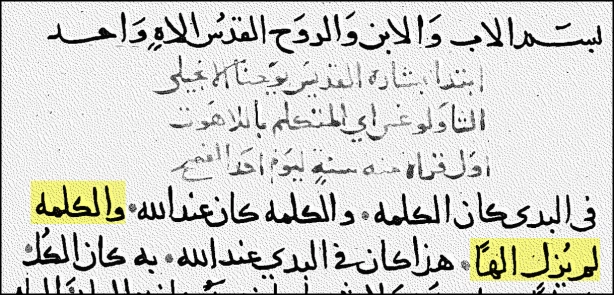 بسم الاب وَالابن وَالروَح القدسُ الاهٍ وَاحد
ابتدا بشاره القديس يوحنا الانجيلى
الثاولوغس اي المتكلم باللاهوت
اول قراه منه سنةٍ ليوم احد الفصح
فى البدى كان الكلمه • والكلمه كان عند الله • والكلمه
لم يُزل الهاً • هذا كان في البدي عند الله • به كان الكُل